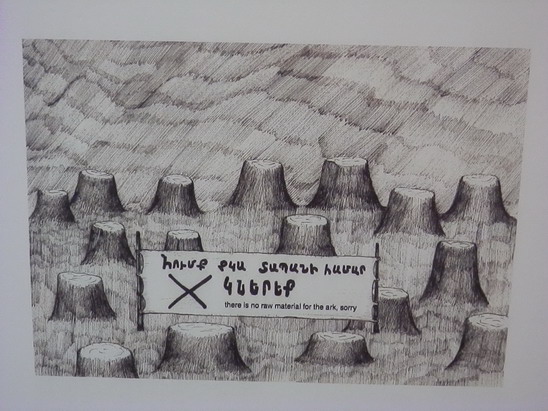 ՀՈՒՄՔ ՉԿԱ ՏԱՊԱՆԻ ՀԱՄԱՐ
ԿՆԵՐԵՔ
there is no raw material for the ark, sorry